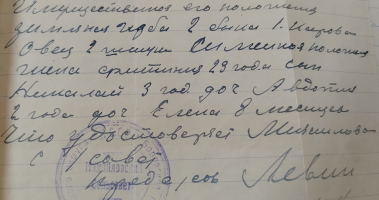 Имущественное его положение
земляная изба 2 быка 1. Корова
Овец 2 штуки Семейное положение
жена 29 года сын
Николай 3 год доч Авдотия
2 года доч Елена 8 месяцев
Что удостоверяет Михаиловск
с/совет
предс/сов Левин